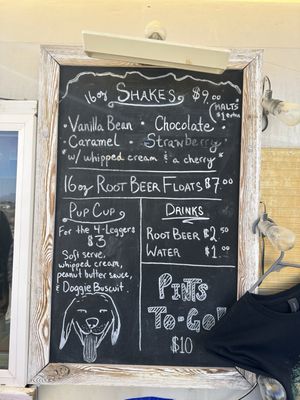 16oz SHAKES $9.00
(MALTS $1 extra)
• Vanilla Bean • Chocolate
• Caramel • Strawberry
*w/ whipped cream & a cherry*
16oz ROOT BEER FLOATS $7.00
PUP CUP
For the 4-Leggers
$3
Soft serve,
whipped cream,
peanut butter sauce,
& Doggie Buscuit
DRINKS
ROOT BEER $2.50
WATER $1.00
PINTS
TO-GO!
$10